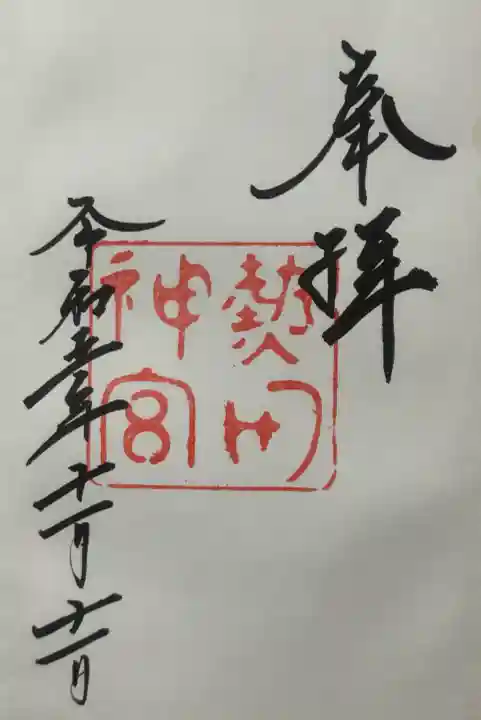 奉拝
熱田神宮
令和五年十一月十一日